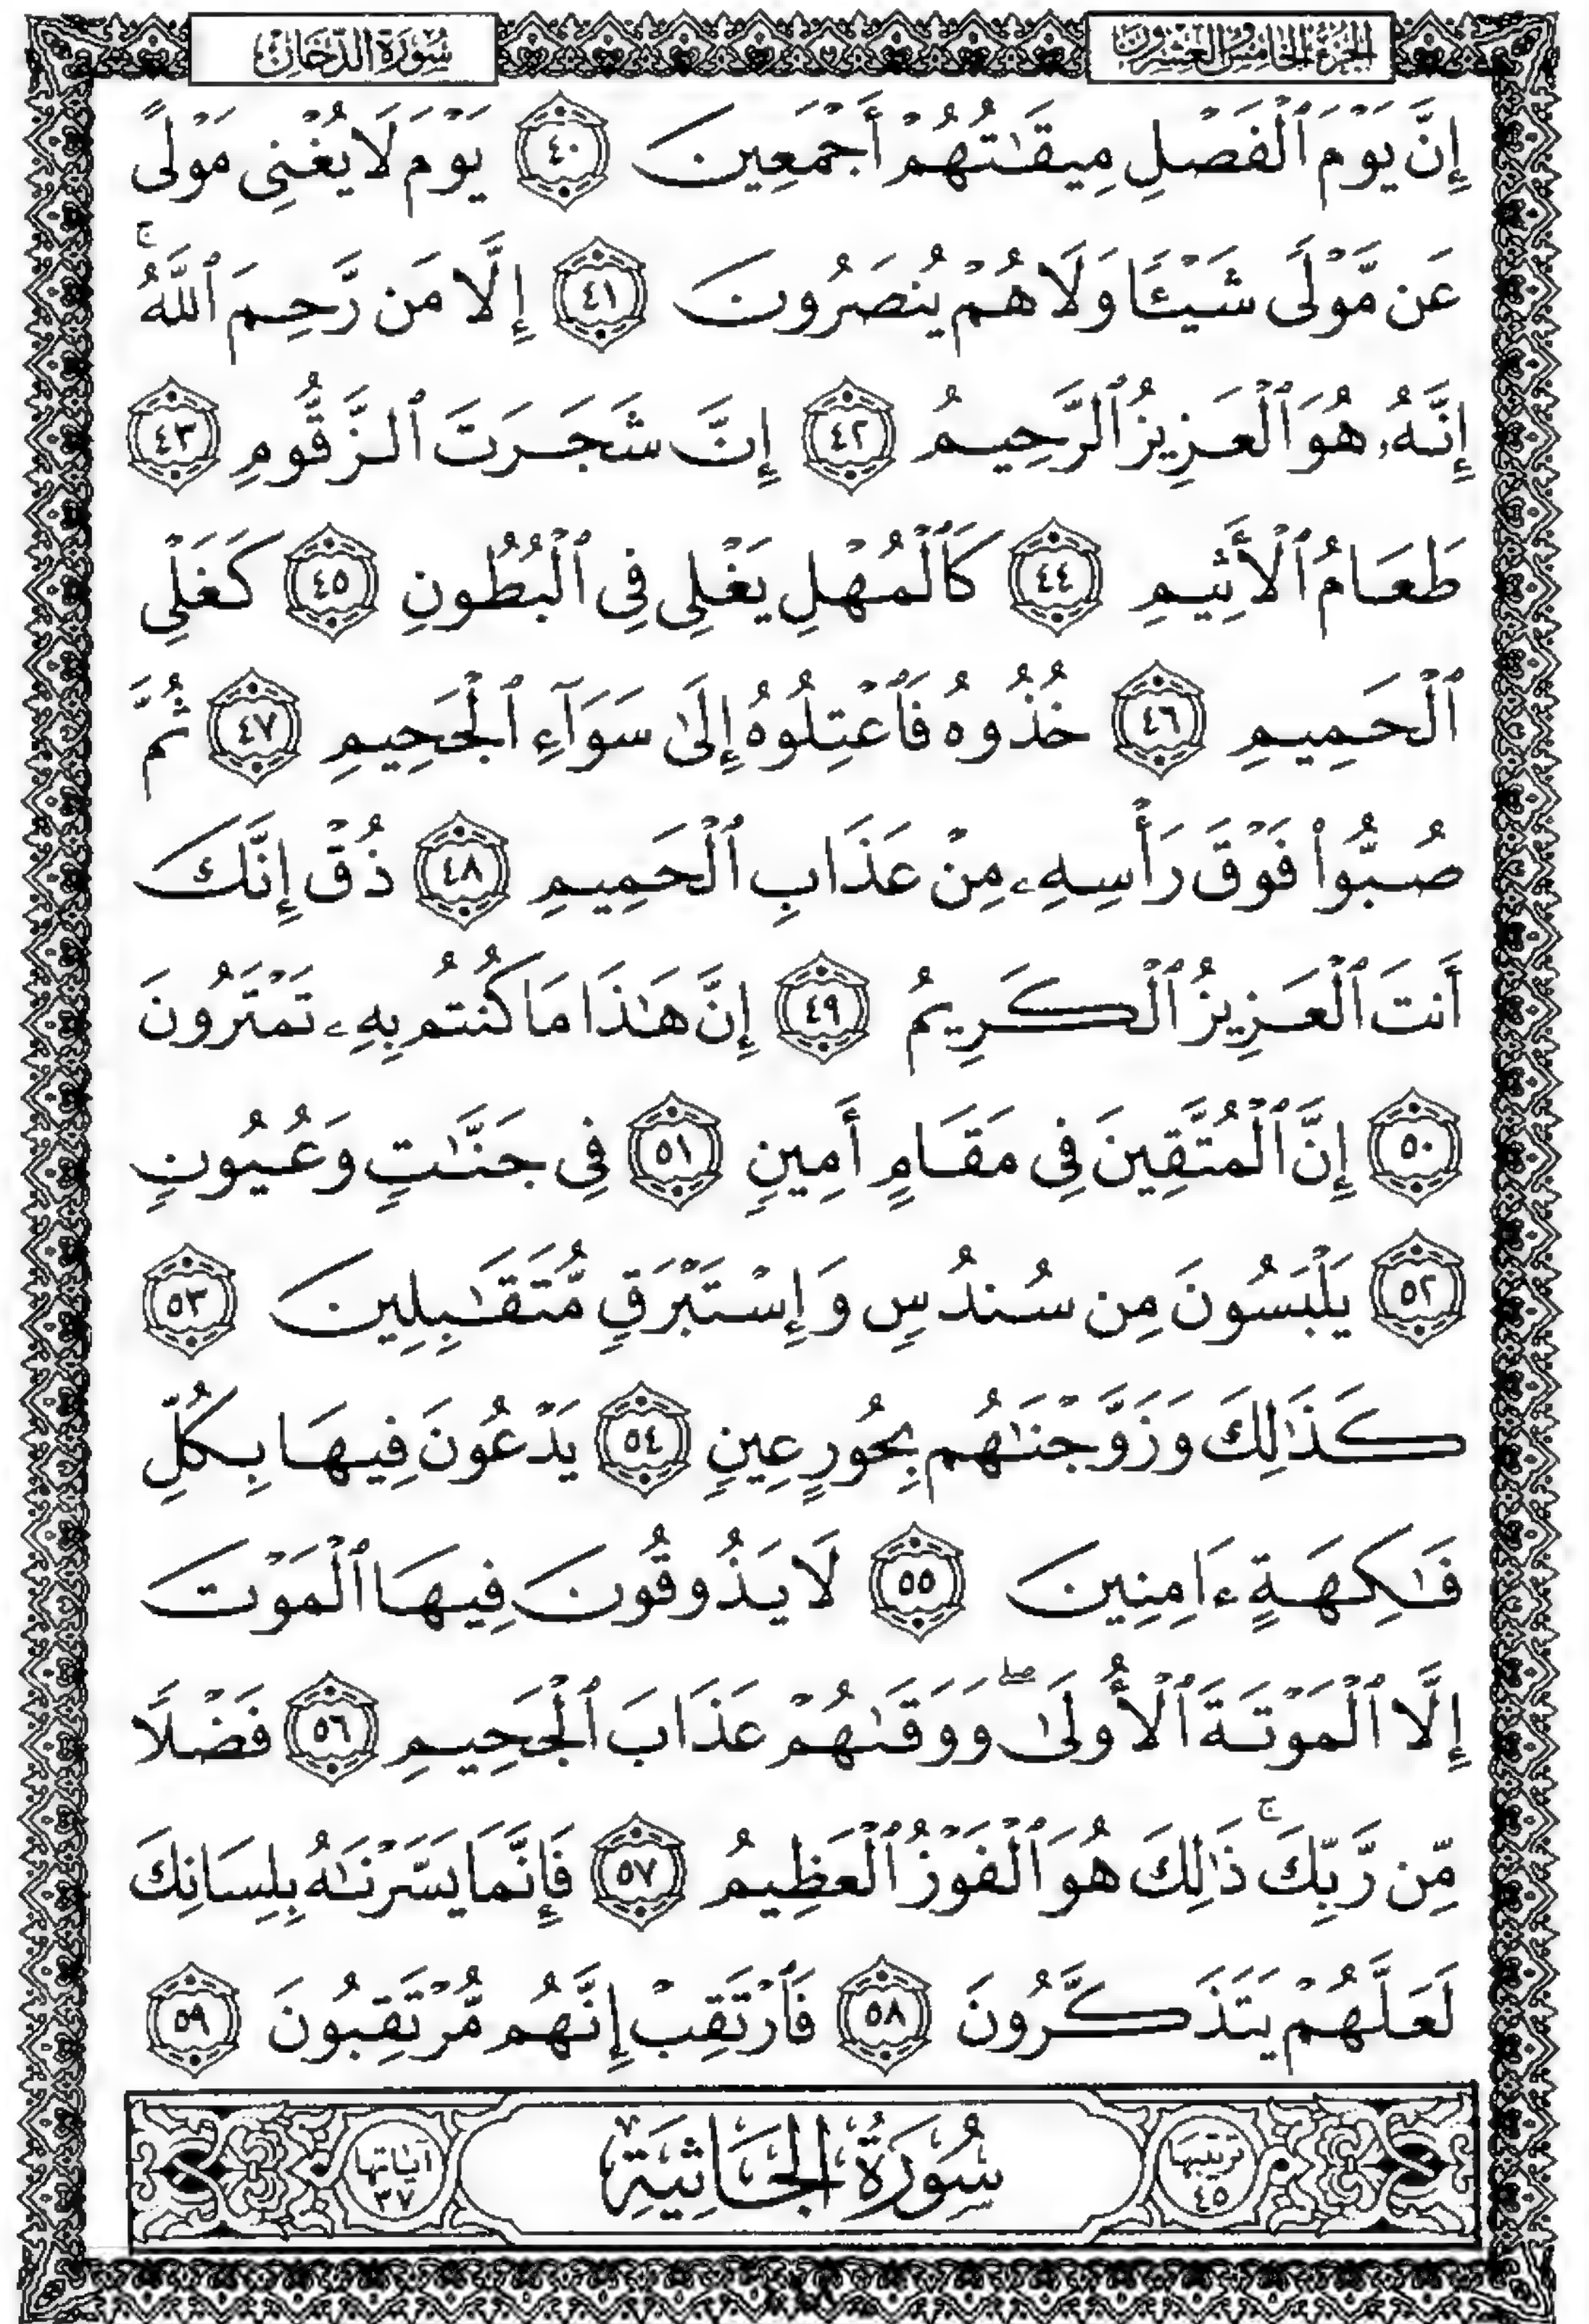 الجزء الخامس والعشرون
سُورَةُ الدُّخَانِ
إِنَّ يَوْمَ ٱلْفَصْلِ مِيقَٰتُهُمْ أَجْمَعِينَ ٤٠ يَوْمَ لَا يُغْنِى مَوْلًى
عَن مَّوْلًى شَيْـًٔا وَلَا هُمْ يُنصَرُونَ ٤١ إِلَّا مَن رَّحِمَ ٱللَّهُ ۚ
إِنَّهُۥ هُوَ ٱلْعَزِيزُ ٱلرَّحِيمُ ٤٢ إِنَّ شَجَرَتَ ٱلزَّقُّومِ ٤٣
طَعَامُ ٱلْأَثِيمِ ٤٤ كَٱلْمُهْلِ يَغْلِى فِى ٱلْبُطُونِ ٤٥ كَغَلْىِ
ٱلْحَمِيمِ ٤٦ خُذُوهُ فَٱعْتِلُوهُ إِلَىٰ سَوَآءِ ٱلْجَحِيمِ ٤٧ ثُمَّ
صُبُّوا۟ فَوْقَ رَأْسِهِۦ مِنْ عَذَابِ ٱلْحَمِيمِ ٤٨ ذُقْ إِنَّكَ
أَنتَ ٱلْعَزِيزُ ٱلْكَرِيمُ ٤٩ إِنَّ هَٰذَا مَا كُنتُم بِهِۦ تَمْتَرُونَ
٥٠ إِنَّ ٱلْمُتَّقِينَ فِى مَقَامٍ أَمِينٍ ٥١ فِى جَنَّٰتٍ وَعُيُونٍ
٥٢ يَلْبَسُونَ مِن سُندُسٍ وَإِسْتَبْرَقٍ مُّتَقَٰبِلِينَ ٥٣
كَذَٰلِكَ وَزَوَّجْنَٰهُم بِحُورٍ عِينٍ ٥٤ يَدْعُونَ فِيهَا بِكُلِّ
فَٰكِهَةٍ ءَامِنِينَ ٥٥ لَا يَذُوقُونَ فِيهَا ٱلْمَوْتَ
إِلَّا ٱلْمَوْتَةَ ٱلْأُولَىٰ ۖ وَوَقَىٰهُمْ عَذَابَ ٱلْجَحِيمِ ٥٦ فَضْلًا
مِّن رَّبِّكَ ۚ ذَٰلِكَ هُوَ ٱلْفَوْزُ ٱلْعَظِيمُ ٥٧ فَإِنَّمَا يَسَّرْنَٰهُ بِلِسَانِكَ
لَعَلَّهُمْ يَتَذَكَّرُونَ ٥٨ فَٱرْتَقِبْ إِنَّهُم مُّرْتَقِبُونَ ٥٩
ترتيبها ٤٥
سُورَةُ الجَاثِيَةِ
آياتها ٣٧